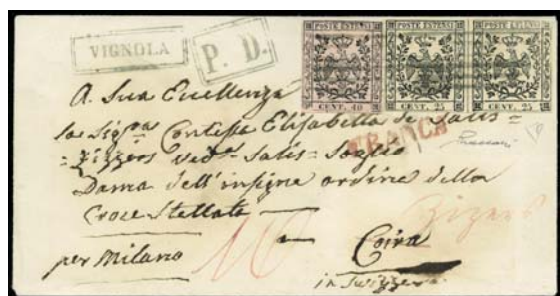 VIGNOLA
P. D.
POSTE ESTENSI POSTE ESTENSI POSTE ESTENSI
CENT. 40 CENT. 25 CENT. 25
A Sua Eccellenza
la Sig.ra Contessa Elisabetta de Salis=
=Zizzers ved.a Salis=Soglio
FRANCA
Dama dell'insigne ordine della
Croce Stellata
Zizers
per Milano
Coira
in Svizzera